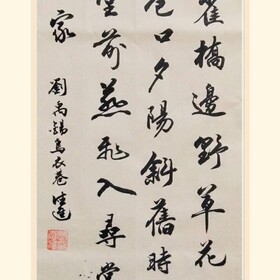 雀橋邊野草花
巷口夕陽斜舊時
堂前燕飛入尋常
家
劉禹錫烏衣巷